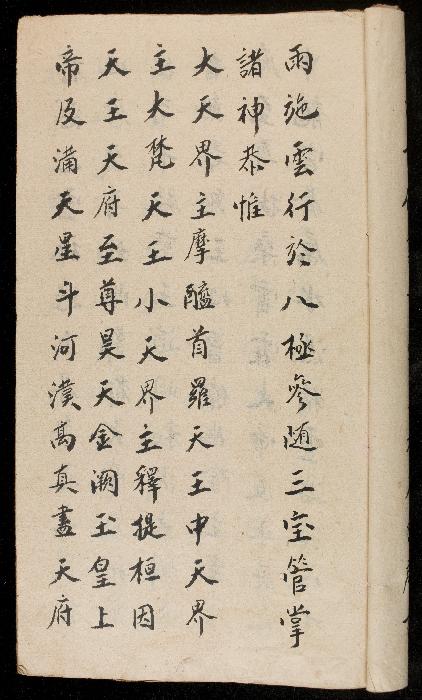 雨施雲行於八極參随三宝管掌
諸神恭惟
大天界主摩醯首羅天王中天界
主大梵天王小天界主釋提桓因
天王天府至尊昊天金闕玉皇上
帝及滿天星斗河漢萬真盡天府